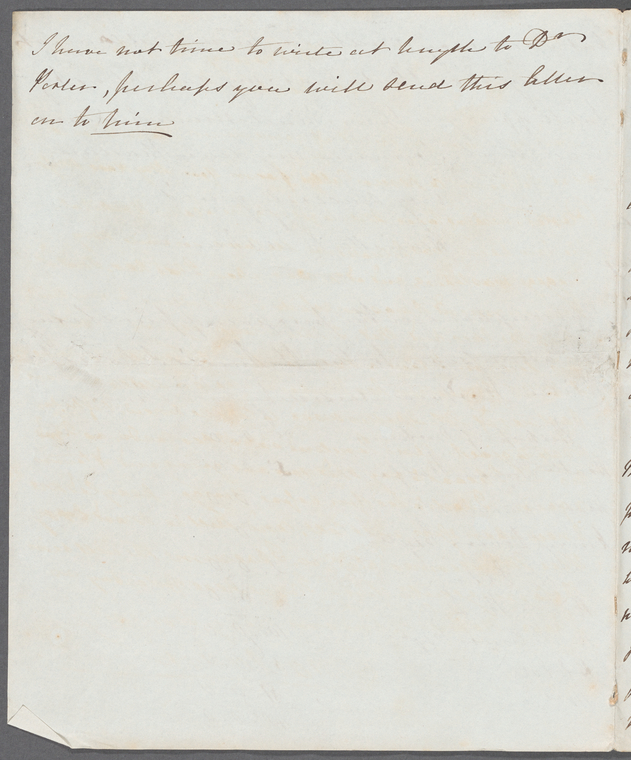 I have not time to write at length to Dr
, perhaps you will send this letter
on to him